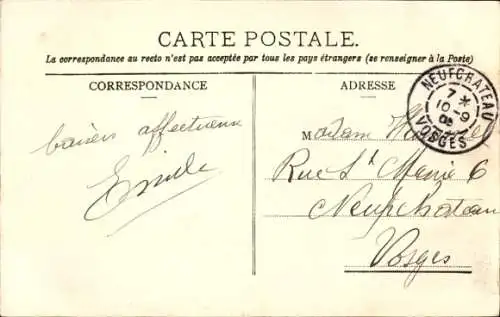 CARTE POSTALE.
La correspondance au recto n'est pas acceptée par tous les pays étrangers (se renseigner à la Poste)
CORRESPONDANCE
ADRESSE
NEUFCHATEAU
7 *
10 - 9
VOSGES
baisers affectueux
Emile
Madame
Rue Ste Marie 6
Neufchateau
Vosges